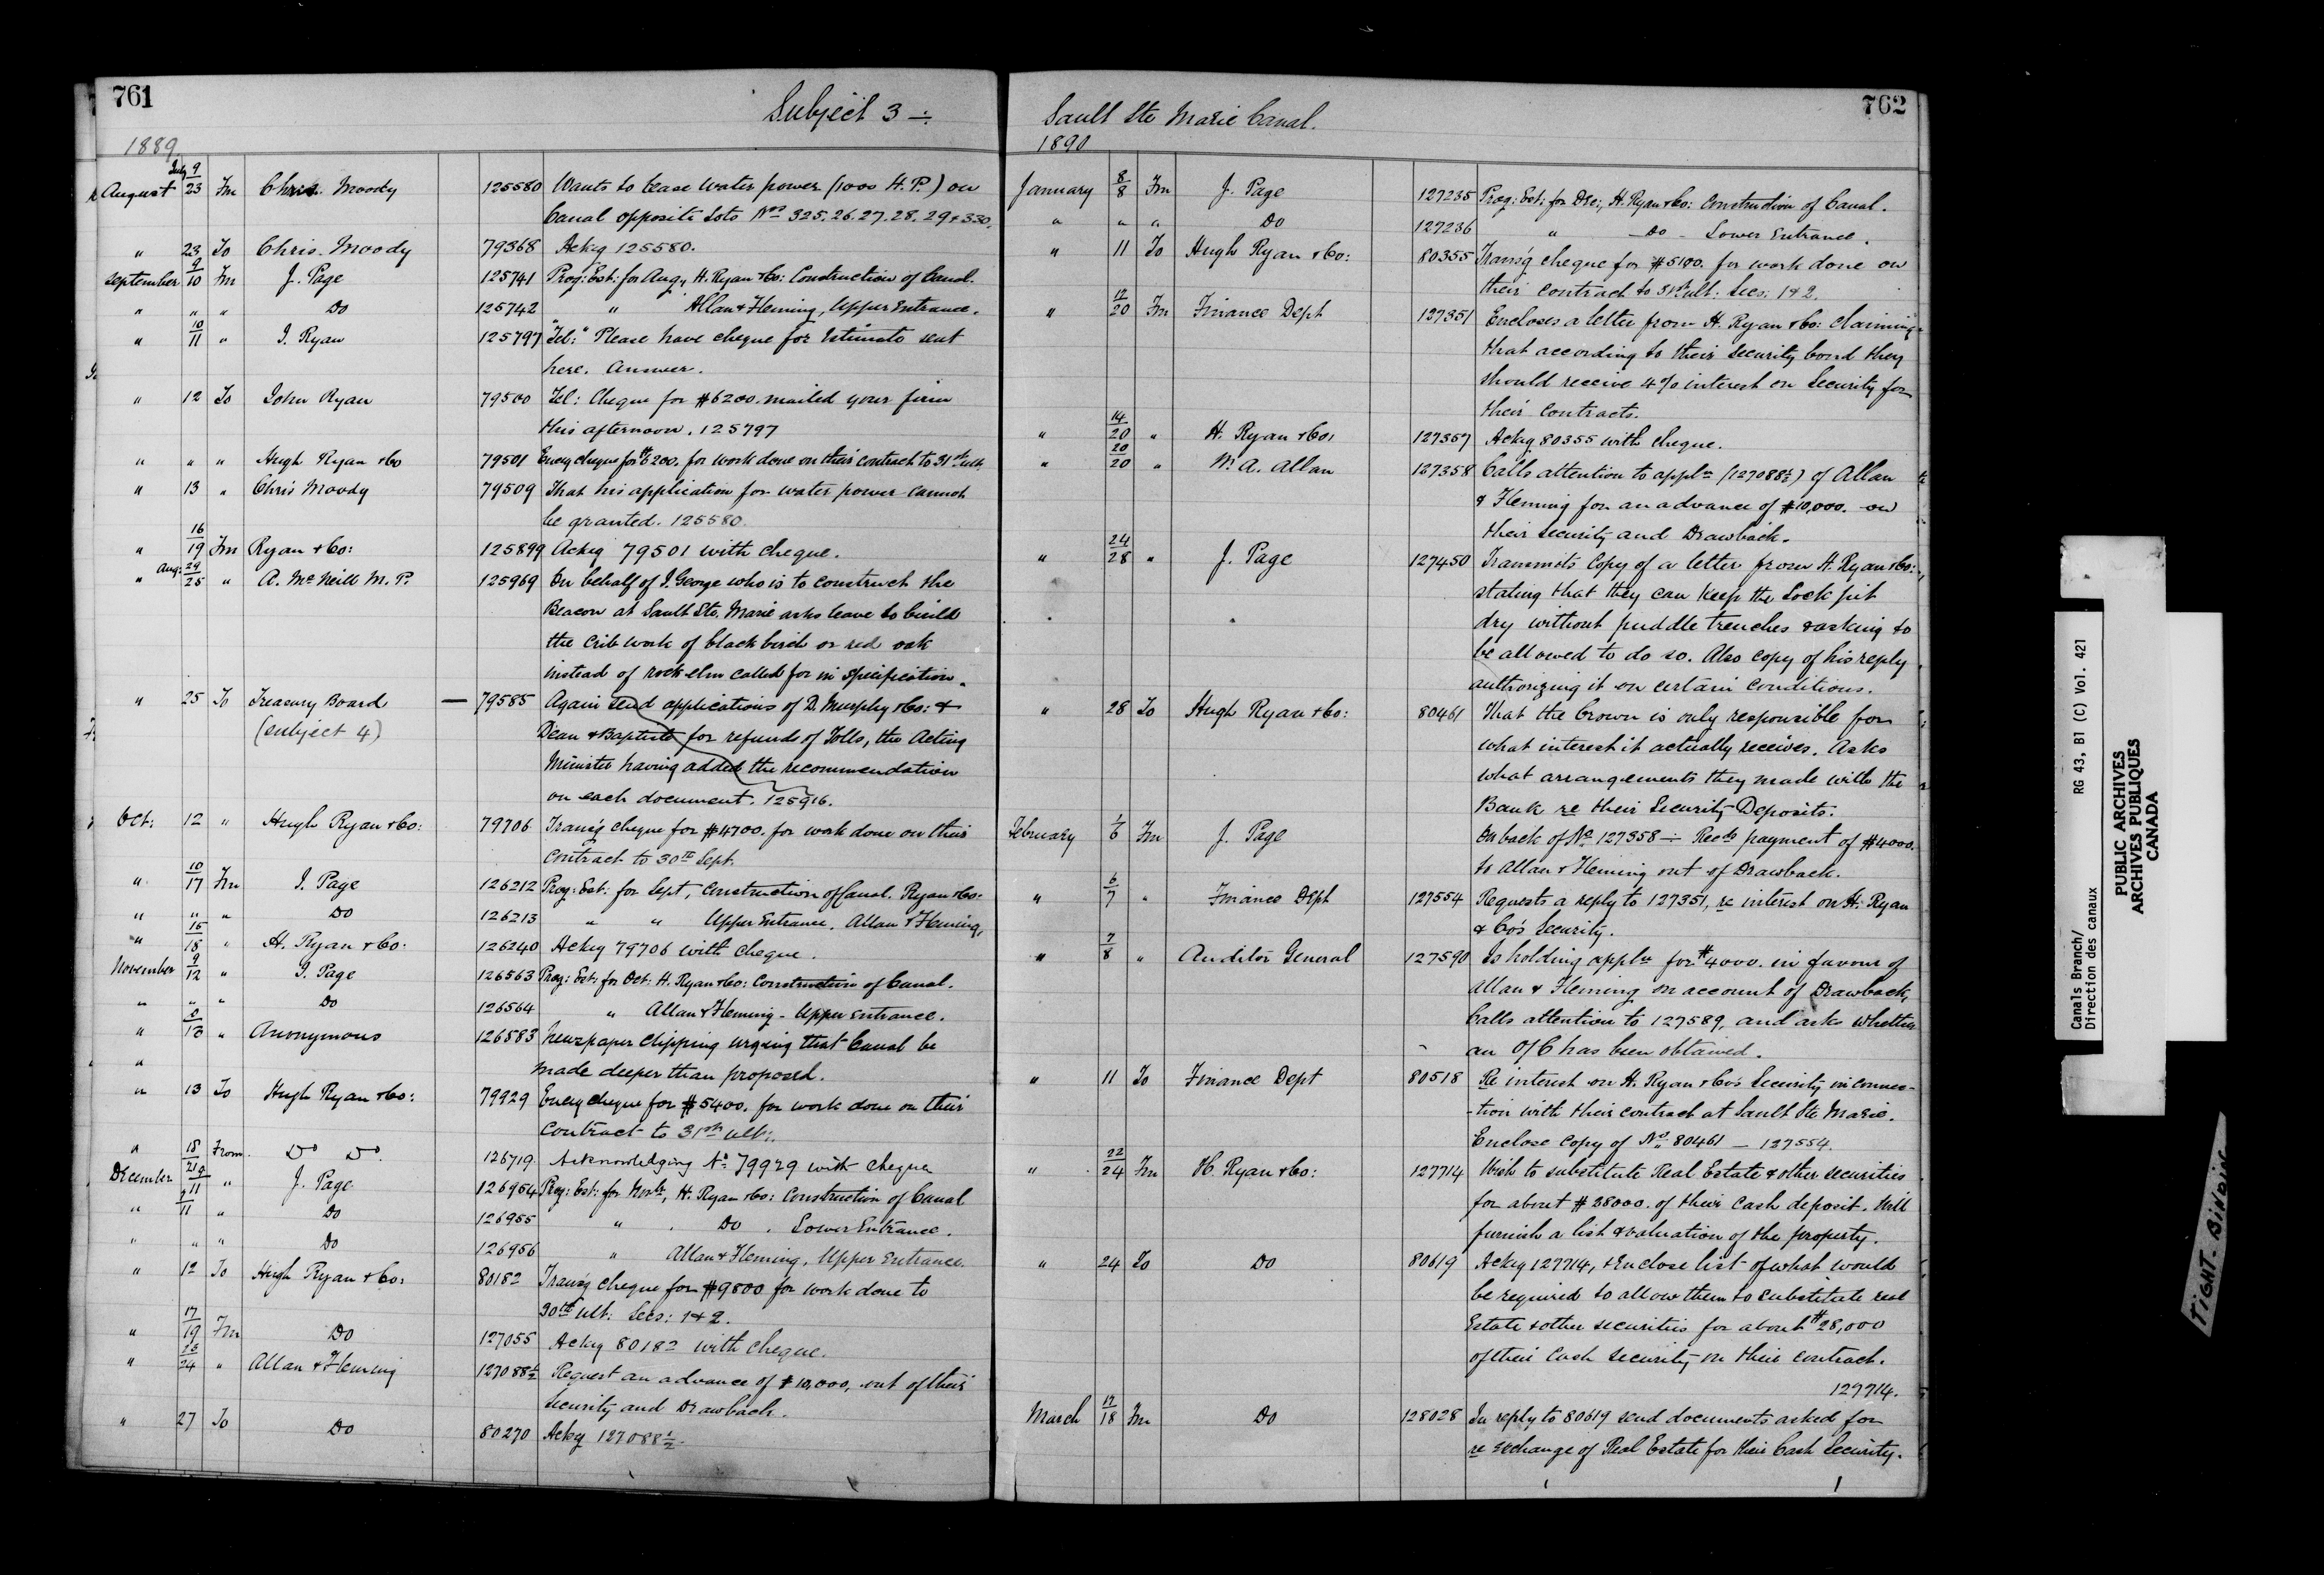 761
Subject 3 ÷
1889.
August July 9/23 Fm Chris. Moody 125580 Wants to lease water power (1000 H.P.) on
Canal opposite Lots Nos 325.26.27.28.29 & 330.
" 23 To Chris. Moody 79368 Ackg 125580.
September 9/10 Fm J. Page 125741 Prog: Est: for Aug, H. Ryan & Co: Construction of Canal.
" " " Do 125742 " Allan & Fleming, Upper Entrance.
" 10/11 " J. Ryan 125797 Tel: "Please have cheque for Estimate sent
here. Answer.
" 12 To John Ryan 79500 Tel: Cheque for $6200. mailed your firm
this afternoon. 125797
" " " Hugh Ryan & Co 79501 Encg cheque for $6200. for work done on their contract to 31st ult.
" 13 " Chris Moody 79509 That his application for water power cannot
be granted. 125580
" 16/19 Fm Ryan & Co: 125899 Ackg 79501 with cheque.
" Aug: 29/25 " A. McNeill M.P. 125969 On behalf of J. George who is to construct the
Beacon at Sault Ste. Marie asks leave to build
the crib work of black birch or red oak
instead of rock elm called for in specification.
" 25 To Treasury Board — 79585 Again send applications of D. Murphy & Co: &
(subject 4) Dean & Baptiste for refunds of Tolls, the Acting
Minister having added the recommendation
on each document. 125916.
Oct: 12 " Hugh Ryan & Co: 79706 Transg cheque for $4700. for work done on their
contract to 30th Sept.
" 10/17 Fm J. Page 126212 Prog: Est: for Sept, Construction of Canal. Ryan & Co:
" " " Do 126213 " " Upper Entrance. Allan & Fleming,
" 15/18 " H. Ryan & Co: 126240 Ackg 79706 with cheque.
November 9/12 " J. Page 126563 Prog: Est: for Oct: H. Ryan & Co: Construction of Canal.
" " " Do 126564 " Allan & Fleming - Upper Entrance.
" " Anonymous 126583 Newspaper clipping urging that Canal be
" made deeper than proposed.
" 13 To Hugh Ryan & Co: 79929 Encg cheque for $5400. for work done on their
contract to 31st ult:.
" 18/21 From Do Do. 126719 Acknowledging No 79929 with cheque
December 9/11 " J. Page 126954 Prog: Est: for Novbr, H. Ryan & Co: Construction of Canal
" 9/11 " Do 126955 " Do. Lower Entrance.
" " " Do 126956 " Allan & Fleming, Upper Entrance.
" 12 To Hugh Ryan & Co: 80182 Transg cheque for $9800 for work done to
30th ult: Secs: 1 & 2.
" 17/19 Fm Do 127055 Ackg 80182 with cheque.
" 24 " Allan & Fleming 127088½ Request an advance of $10,000, out of their
Security and Drawback.
" 27 To Do 80270 Ackg 127088½.
762
Sault Ste Marie Canal.
1890
January 8/8 Fm J. Page 127235 Prog: Est: for Dec:, H. Ryan & Co: Construction of Canal.
" " " Do 127236 " - Do - Lower Entrance.
" 11 To Hugh Ryan & Co: 80355 Transg cheque for $5100. for work done on
their contract to 31st ult: Secs: 1 & 2.
" 12/20 Fm Finance Dept 127351 Encloses a letter from H. Ryan & Co: claiming
that according to their security bond they
should receive 4% interest on Security for
their contracts.
" 14/20 " H. Ryan & Co: 127357 Ackg 80355 with cheque.
" 20/20 " W. A. Allan 127358 Calls attention to appln (127088½) of Allan
& Fleming for an advance of $10,000. on
their security and Drawback.
" 24/28 " J. Page 127450 Transmits copy of a letter from H. Ryan & Co:
stating that they can keep the Lock pit
dry without puddle trenches & asking to
be allowed to do so. Also copy of his reply
authorizing it on certain conditions.
" 28 To Hugh Ryan & Co: 80461 That the Crown is only responsible for
what interest it actually receives. Asks
what arrangements they made with the
Bank re their Security Deposits.
February 1/6 Fm J. Page On back of No 127358 ÷ Recds payment of $4000.
to Allan & Fleming out of Drawback.
" 6/7 " Finance Dept 127554 Requests a reply to 127351, re interest on H. Ryan
& Co's Security.
" 7/8 " Auditor General 127590 Is holding appln for $4000. in favour of
Allan & Fleming on account of Drawback,
Calls attention to 127589, and asks whether
an O/C has been obtained.
" 11 To Finance Dept 80518 Re interest on H. Ryan & Co's Security in connec-
-tion with their contract at Sault Ste Marie.
Enclose copy of No 80461 — 127554.
" 22/24 Fm H. Ryan & Co: 127714 Wish to substitute Real Estate & other securities
for about $28000. of their cash deposit. Will
furnish a list & valuation of the property.
" 24 To Do 80619 Ackg 127714, & Enclose list of what would
be required to allow them to substitute real
Estate & other securities for about $28,000
of their cash security on their contract.
127714.
March 17/18 Fm Do 128028 In reply to 80619 send documents asked for
re exchange of Real Estate for their Cash Security.
Canals Branch/ RG 43, B1 (C) Vol. 421
Direction des canaux
PUBLIC ARCHIVES
ARCHIVES PUBLIQUES
CANADA
TIGHT-BINDING